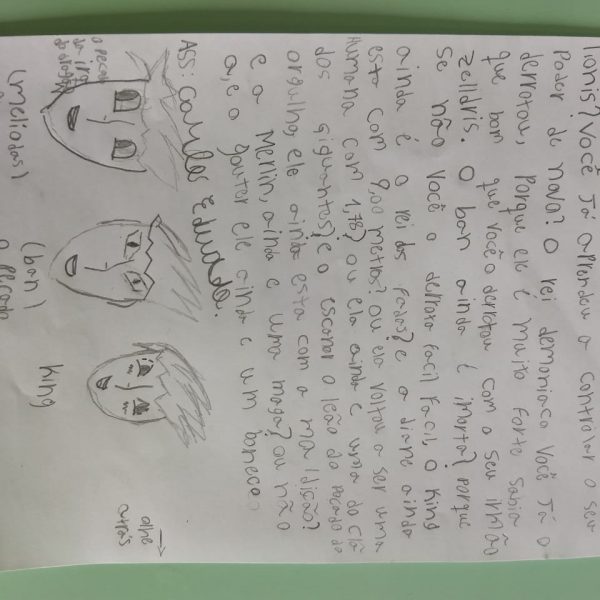 lionis? Você Já aprendeu a controlar o seu
Poder de nova? O rei demoniaco Você Já o
derrotou, Porque ele é muito forte sabia
que bom que você o derrotou com o seu irmão
zelldris. O ban ainda é imortal? Porque
se não você o derrota facil facil, O King
ainda é o rei das fadas? e a diane ainda
esta com 9,00 metros? ou ela voltou a ser uma
Humana com 1,78? ou ela ainda e uma do Clã
dos giguantes? e o escanor o leão do Pecado do
orgulho, ele ainda esta com a maldição?
e a Merlin, ainda e uma maga? ou não
a, e o gouter ele ainda e um boneco
Ass: Carlos Eduardo.
o pecado
da ira
do dragão
(meliodas)
(ban)
o pecado
King
olhe
atrás